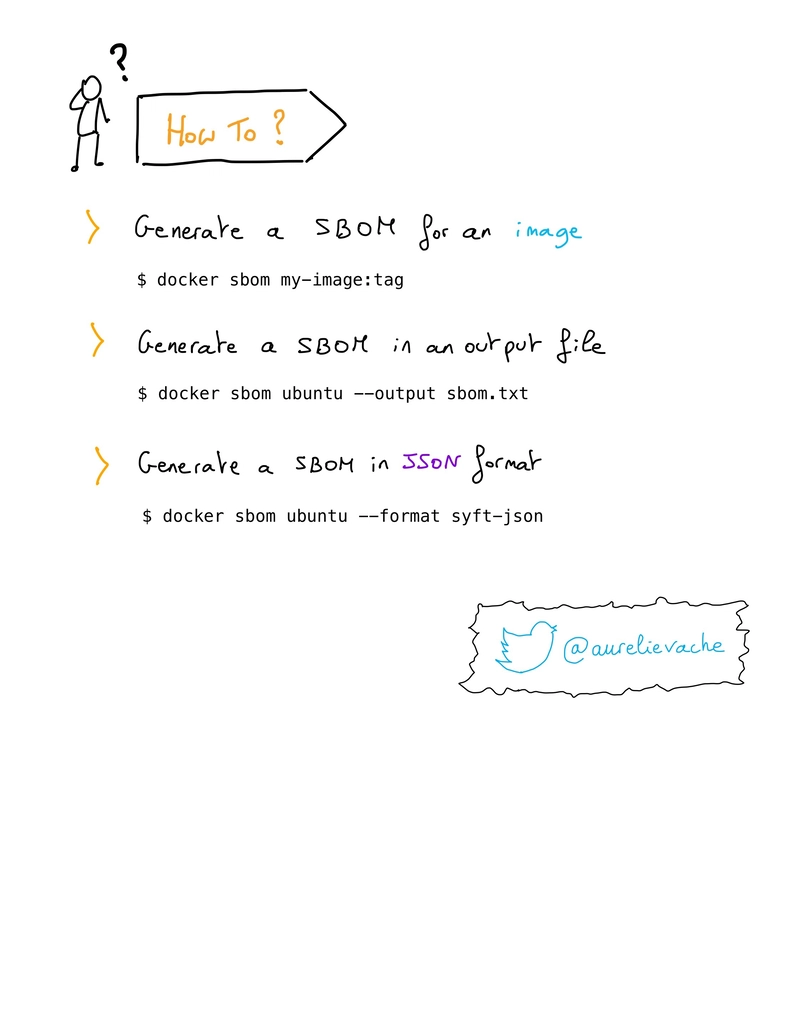 ?
How To ?
Generate a SBOM for an image
$ docker sbom my-image:tag
Generate a SBOM in an output file
$ docker sbom ubuntu --output sbom.txt
Generate a SBOM in JSON format
$ docker sbom ubuntu --format syft-json
@aurelievache